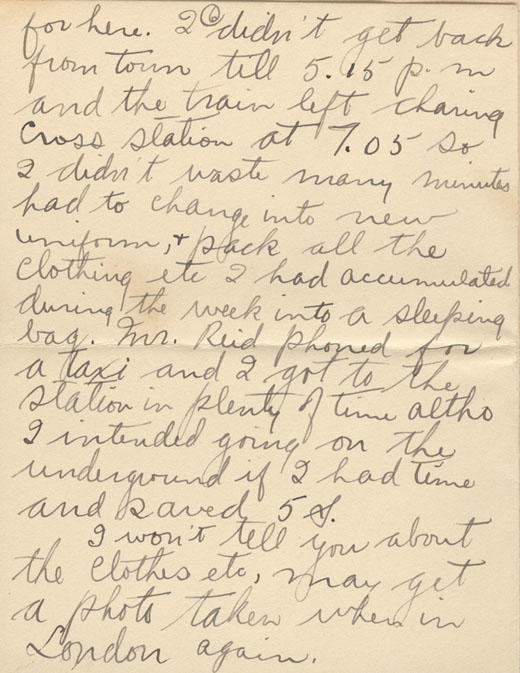 for here. I didn't get back
from town till 5.15 p.m
and the train left charing
Cross station at 7.05 so
I didn't waste many minutes
had to change into new
uniform, + pack all the
clothing etc I had accumulated
during the week into a sleeping
bag. Mr. Reid phoned for
a taxi and I got to the
station in plenty of time altho
I intended going on the
underground if I had time
and saved 5 S.
I won't tell you about
the clothes etc, may get
a photo taken when in
London again.